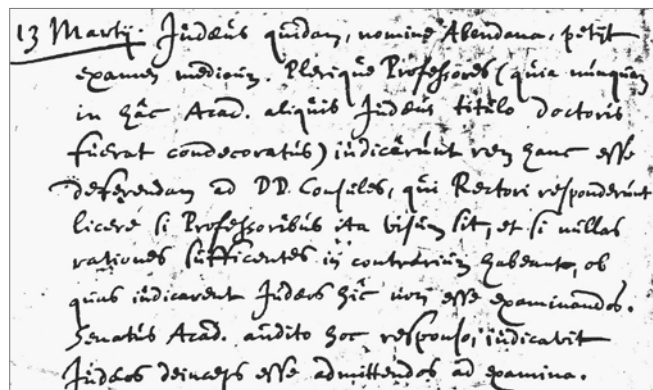 13 Martij. Judæus quidam, nomine Abendana, petijt
examen medicum. Plerique Professores (quia nunquam
in hâc Acad. aliquis Judæus titulo doctoris
fuerat condecoratus) iudicârunt rem hanc esse
deferendam ad DD. Consules, qui Rectori responderunt
licere si Professoribus ita visum sit, et si nullas
rationes sufficentes in contrarium habeant, ob
quas iudicarent Judæos hîc non esse examinandos.
Senatus Acad. audito hoc responso, iudicavit
Judæos deinceps esse admittendos ad examina.